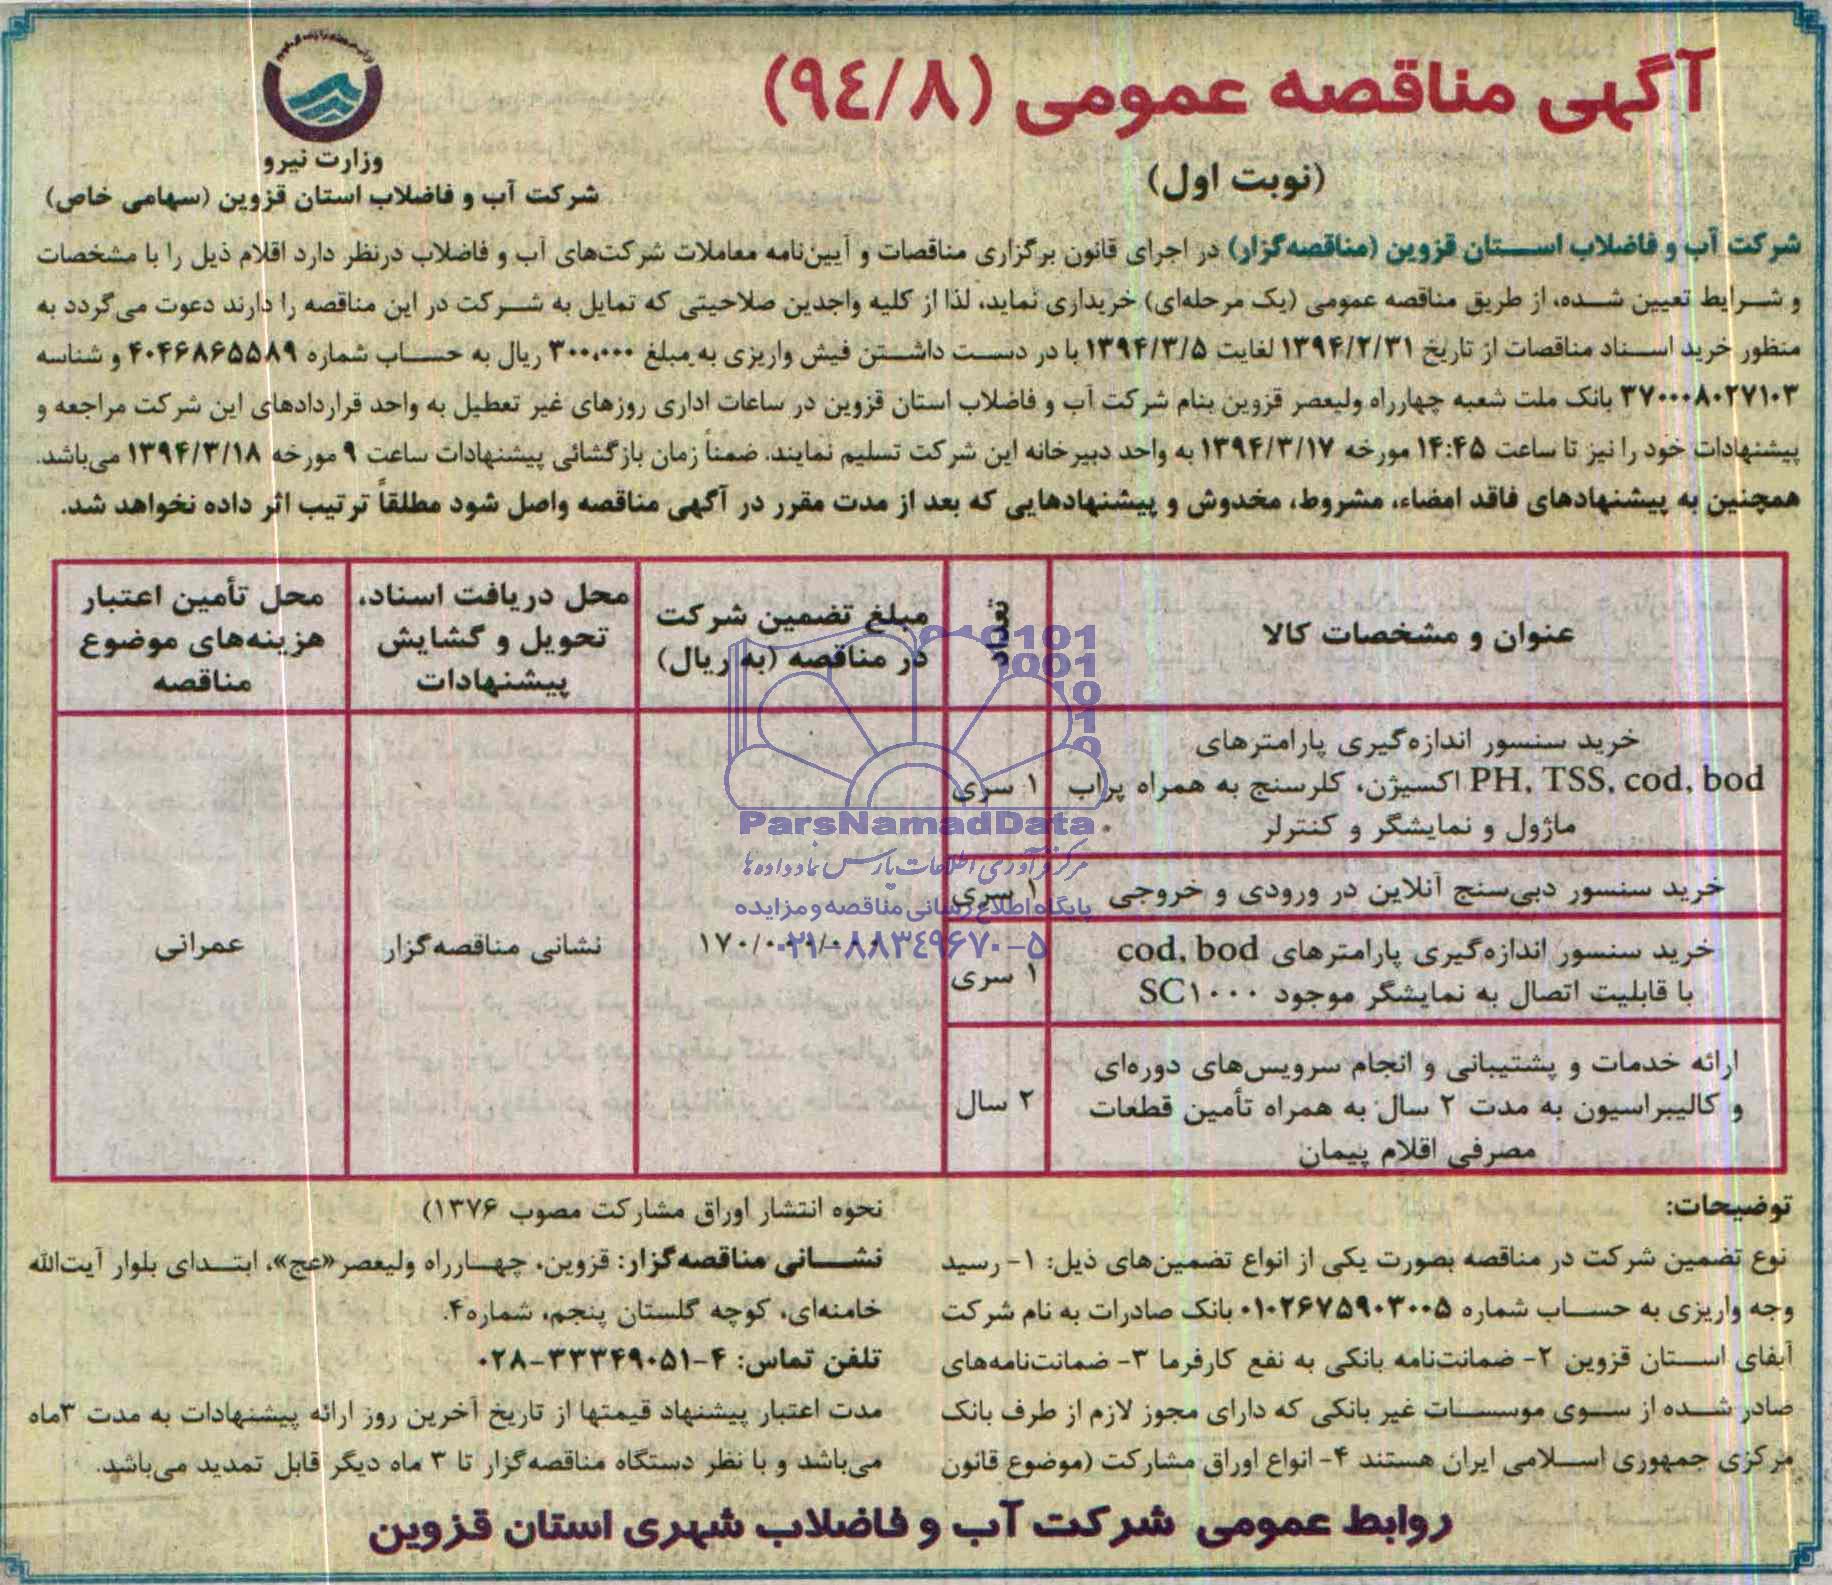 آگهی مناقصه عمومی (۹٤/۸)
(نوبت اول)
وزارت نیرو
شرکت آب و فاضلاب استان قزوین (سهامی خاص)
شرکت آب و فاضلاب استان قزوین (مناقصه‌گزار) در اجرای قانون برگزاری مناقصات و آیین‌نامه معاملات شرکت‌های آب و فاضلاب درنظر دارد اقلام ذیل را با مشخصات
و شرایط تعیین شده، از طریق مناقصه عمومی (یک مرحله‌ای) خریداری نماید، لذا از کلیه واجدین صلاحیتی که تمایل به شرکت در این مناقصه را دارند دعوت می‌گردد به
منظور خرید اسناد مناقصات از تاریخ ۱۳۹۴/۲/۳۱ لغایت ۱۳۹۴/۳/۵ با در دست داشتن فیش واریزی به مبلغ ۳۰۰،۰۰۰ ریال به حساب شماره ۴۰۴۶۸۶۵۵۸۹ و شناسه
۳۷۰۰۰۸۰۲۷۱۰۳ بانک ملت شعبه چهارراه ولیعصر قزوین بنام شرکت آب و فاضلاب استان قزوین در ساعات اداری روزهای غیر تعطیل به واحد قراردادهای این شرکت مراجعه و
پیشنهادات خود را نیز تا ساعت ۱۴:۴۵ مورخه ۱۳۹۴/۳/۱۷ به واحد دبیرخانه این شرکت تسلیم نمایند. ضمناً زمان بازگشائی پیشنهادات ساعت ۹ مورخه ۱۳۹۴/۳/۱۸ می‌باشد.
همچنین به پیشنهادهای فاقد امضاء، مشروط، مخدوش و پیشنهادهایی که بعد از مدت مقرر در آگهی مناقصه واصل شود مطلقاً ترتیب اثر داده نخواهد شد.
عنوان و مشخصات کالا
تعداد
مبلغ تضمین شرکت
در مناقصه (به ریال)
محل دریافت اسناد،
تحویل و گشایش
پیشنهادات
محل تأمین اعتبار
هزینه‌های موضوع
مناقصه
خرید سنسور اندازه‌گیری پارامترهای
PH, TSS, cod, bod اکسیژن، کلرسنج به همراه پراب
ماژول و نمایشگر و کنترلر
۱ سری
خرید سنسور دبی‌سنج آنلاین در ورودی و خروجی
۱ سری
خرید سنسور اندازه‌گیری پارامترهای cod, bod
با قابلیت اتصال به نمایشگر موجود SC۱۰۰۰
۱ سری
ارائه خدمات و پشتیبانی و انجام سرویس‌های دوره‌ای
و کالیبراسیون به مدت ۲ سال به همراه تأمین قطعات
مصرفی اقلام پیمان
۲ سال
۱۷۰/۰۰۰/۰۰۰
نشانی مناقصه‌گزار
عمرانی
ParsNamadData
مرکز فرآوری اطلاعات پارس نماد داده‌ها
پایگاه اطلاع رسانی مناقصه و مزایده
۰۲۱-۸۸۳٤۹٦۷۰-۵
توضیحات:
نوع تضمین شرکت در مناقصه بصورت یکی از انواع تضمین‌های ذیل: ۱- رسید
وجه واریزی به حساب شماره ۰۱۰۲۶۷۵۹۰۳۰۰۵ بانک صادرات به نام شرکت
آبفای استان قزوین ۲- ضمانت‌نامه بانکی به نفع کارفرما ۳- ضمانت‌نامه‌های
صادر شده از سوی موسسات غیر بانکی که دارای مجوز لازم از طرف بانک
مرکزی جمهوری اسلامی ایران هستند ۴- انواع اوراق مشارکت (موضوع قانون
نحوه انتشار اوراق مشارکت مصوب ۱۳۷۶)
نشانی مناقصه‌گزار: قزوین، چهارراه ولیعصر«عج»، ابتدای بلوار آیت‌الله
خامنه‌ای، کوچه گلستان پنجم، شماره۴.
تلفن تماس: ۴-۳۳۳۴۹۰۵۱-۰۲۸
مدت اعتبار پیشنهاد قیمتها از تاریخ آخرین روز ارائه پیشنهادات به مدت ۳ماه
می‌باشد و با نظر دستگاه مناقصه‌گزار تا ۳ ماه دیگر قابل تمدید می‌باشد.
روابط عمومی شرکت آب و فاضلاب شهری استان قزوین